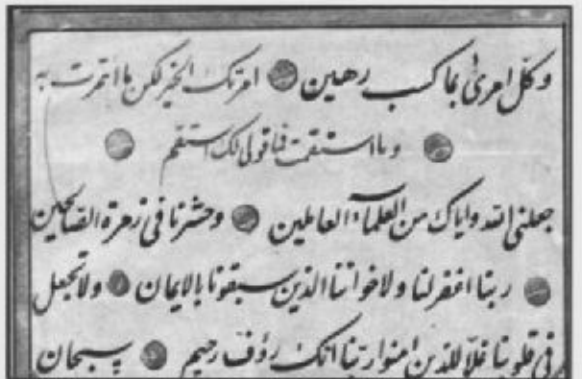 وكل امرئ بما كسب رهين امرتك الخير لكن ما ائتمرت به
وما استقمت فما قولى لك استقم
جعلنى الله واياك من العلماء العاملين وحشرنا فى زمرة الصالحين
ربنا اغفر لنا ولاخواننا الذين سبقونا بالايمان ولا تجعل
فى قلوبنا غلا للذين امنوا ربنا انك رؤف رحيم سبحان